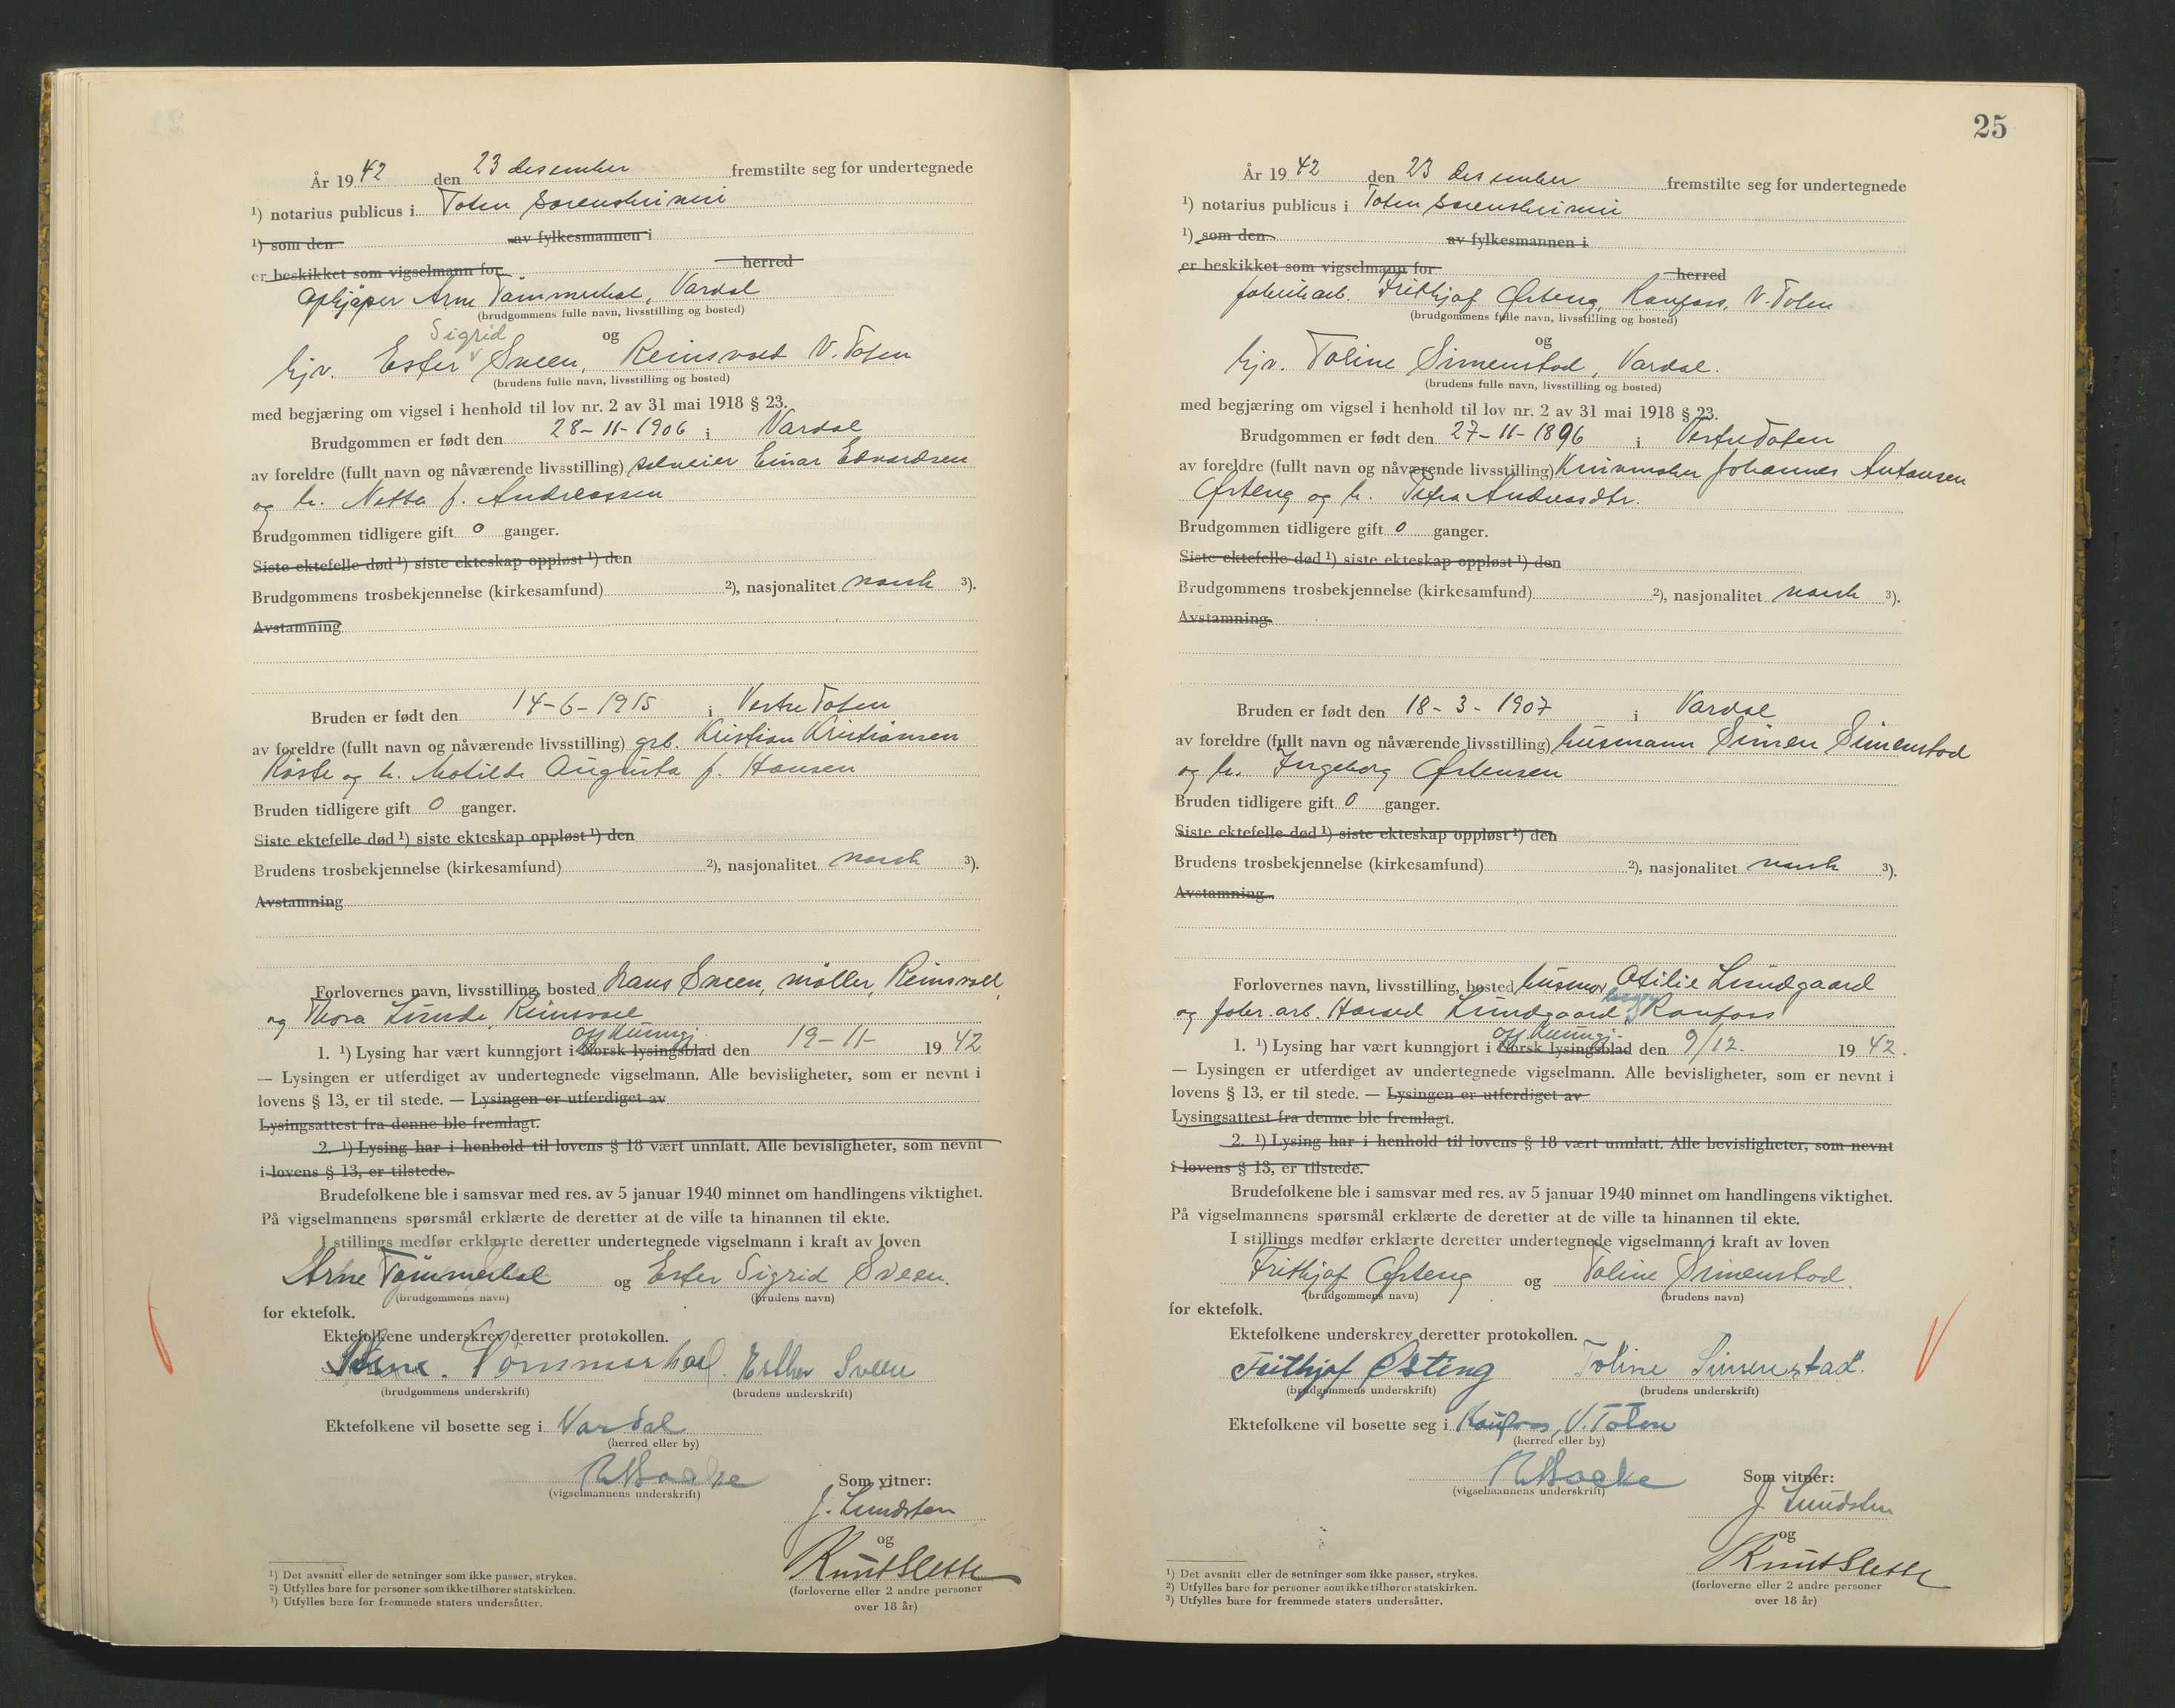 År 1942 den 23 desember fremstilte seg for undertegnede
¹) notarius publicus i Toten sorenskriveri
¹) som den av fylkesmannen i
er beskikket som vigselmann for herred
Arne Tømmerhol, Vardal
(brudgommens fulle navn, livsstilling og bosted)
og
Sigrid
hjv. Ester Sveen, Reinsvoll V. Toten
(brudens fulle navn, livsstilling og bosted)
med begjæring om vigsel i henhold til lov nr. 2 av 31 mai 1918 § 23.
Brudgommen er født den 28-11-1906 i Vardal
av foreldre (fullt navn og nåværende livsstilling) selveier Einar Edvardsen
og h. Netta f. Andreassen
Brudgommen tidligere gift 0 ganger.
Siste ektefelle død ¹) siste ekteskap oppløst ¹) den
Brudgommens trosbekjennelse (kirkesamfund) ²), nasjonalitet norsk ³).
Avstamning
Bruden er født den 14-6-1915 i Vestre Toten
av foreldre (fullt navn og nåværende livsstilling) grb. Kristian Kristiansen
Røste og h. Matilde Augusta f. Hansen
Bruden tidligere gift 0 ganger.
Siste ektefelle død ¹) siste ekteskap oppløst ¹) den
Brudens trosbekjennelse (kirkesamfund) ²), nasjonalitet norsk ³).
Avstamning
Forlovernes navn, livsstilling, bosted Hans Sveen, møller, Reinsvoll,
og Thora Lunde, Reinsvoll
off. kunngj.
1. ¹) Lysing har vært kunngjort i Norsk lysingsblad den 19-11- 1942
— Lysingen er utferdiget av undertegnede vigselmann. Alle bevisligheter, som er nevnt i
lovens § 13, er til stede. — Lysingen er utferdiget av
Lysingsattest fra denne ble fremlagt.
2. ¹) Lysing har i henhold til lovens § 18 vært unnlatt. Alle bevisligheter, som nevnt
i lovens § 13, er tilstede.
Brudefolkene ble i samsvar med res. av 5 januar 1940 minnet om handlingens viktighet.
På vigselmannens spørsmål erklærte de deretter at de ville ta hinannen til ekte.
I stillings medfør erklærte deretter undertegnede vigselmann i kraft av loven
Arne Tømmerhol og Ester Sigrid Sveen.
(brudgommens navn) (brudens navn)
for ektefolk.
Ektefolkene underskrev deretter protokollen.
Arne. Tømmerhol. Esther Sveen
(brudgommens underskrift) (brudens underskrift)
Ektefolkene vil bosette seg i Vardal
(herred eller by)
Som vitner:
(vigselmannens underskrift)
J. Lundsten
og
Knut Slette
(forloverne eller 2 andre personer
over 18 år)
¹) Det avsnitt eller de setninger som ikke passer, strykes.
²) Utfylles bare for personer som ikke tilhører statskirken.
³) Utfylles bare for fremmede staters undersåtter.
25
År 1942 den 23 desember fremstilte seg for undertegnede
¹) notarius publicus i Toten sorenskriveri
¹) som den av fylkesmannen i
er beskikket som vigselmann for herred
fabrikarb. Frithjof Østeng, Raufoss, V. Toten
(brudgommens fulle navn, livsstilling og bosted)
og
hjv. Toline Simenstad, Vardal.
(brudens fulle navn, livsstilling og bosted)
med begjæring om vigsel i henhold til lov nr. 2 av 31 mai 1918 § 23.
Brudgommen er født den 27-11-1896 i Vestre Toten
av foreldre (fullt navn og nåværende livsstilling) Knivmaker Johannes Antonsen
Østeng og h. Petra Andreasdtr.
Brudgommen tidligere gift 0 ganger.
Siste ektefelle død ¹) siste ekteskap oppløst ¹) den
Brudgommens trosbekjennelse (kirkesamfund) ²), nasjonalitet norsk ³).
Avstamning
Bruden er født den 18-3-1907 i Vardal
av foreldre (fullt navn og nåværende livsstilling) husmann Simen Simenstad
og h. Ingeborg Østensen
Bruden tidligere gift 0 ganger.
Siste ektefelle død ¹) siste ekteskap oppløst ¹) den
Brudens trosbekjennelse (kirkesamfund) ²), nasjonalitet norsk ³).
Avstamning
Forlovernes navn, livsstilling, bosted husmor Otilie Lundgaard
og fabr. arb. Harald Lundgaard, Raufoss
off. kunngj.
1. ¹) Lysing har vært kunngjort i Norsk lysingsblad den 9/12. 1942.
— Lysingen er utferdiget av undertegnede vigselmann. Alle bevisligheter, som er nevnt i
lovens § 13, er til stede. — Lysingen er utferdiget av
Lysingsattest fra denne ble fremlagt.
2. ¹) Lysing har i henhold til lovens § 18 vært unnlatt. Alle bevisligheter, som nevnt
i lovens § 13, er tilstede.
Brudefolkene ble i samsvar med res. av 5 januar 1940 minnet om handlingens viktighet.
På vigselmannens spørsmål erklærte de deretter at de ville ta hinannen til ekte.
I stillings medfør erklærte deretter undertegnede vigselmann i kraft av loven
Frithjof Østeng og Toline Simenstad.
(brudgommens navn) (brudens navn)
for ektefolk.
Ektefolkene underskrev deretter protokollen.
Frithjof Østeng Toline Simenstad.
(brudgommens underskrift) (brudens underskrift)
Ektefolkene vil bosette seg i Raufoss, V. Toten
(herred eller by)
Som vitner:
(vigselmannens underskrift)
J. Lundsten
og
Knut Slette
(forloverne eller 2 andre personer
over 18 år)
¹) Det avsnitt eller de setninger som ikke passer, strykes.
²) Utfylles bare for personer som ikke tilhører statskirken.
³) Utfylles bare for fremmede staters undersåtter.